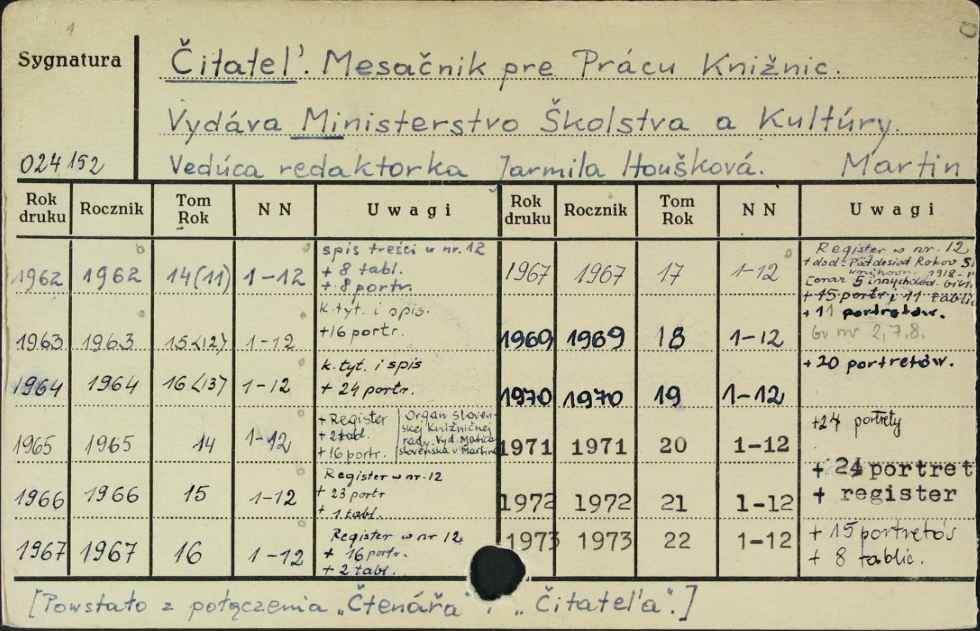 Sygnatura
Čitateľ. Mesačnik pre Prácu Knižnic.
Vydáva Ministerstvo Školstva a Kultúry.
024152 Vedúca redaktorka Jarmila Houšková. Martin
Rok druku Rocznik Tom Rok NN Uwagi Rok druku Rocznik Tom Rok NN Uwagi
1962 1962 14(11) 1-12 spis treści w nr. 12
+ 8 tabl.
+ 8 portr.
1963 1963 15<12> 1-12 k. tyt. i spis.
+16 portr.
1964 1964 16<13> 1-12 k. tyt. i spis
+ 24 portr.
1965 1965 14 1-12 + Register
+ 2 tabl.
+ 16 portr.
Organ sloven-
skej Knižničnej
rady. Vyd. Matica
slovenská v Martine
1966 1966 15 1-12 Register w nr. 12
+ 23 portr
+ 1 tabl.
1967 1967 16 1-12 Register w nr 12
+ 16 portr.
+ 2 tabl.
1967 1967 17 1-12 Register w nr. 12
+ dod.: Päťdesiat Rokov
1918-
5
+ 15 portr. i 11 tablic
1969 1969 18 1-12 + 11 portretów.
Br nr 2, 7, 8.
1970 1970 19 1-12 + 20 portretów.
1971 1971 20 1-12 +24 portrety
1972 1972 21 1-12 + 24 portret
+ register
1973 1973 22 1-12 + 15 portretós
+ 8 tablic.
[Powstało z połączenia „Čtenářa” i „Čitateľa”.]